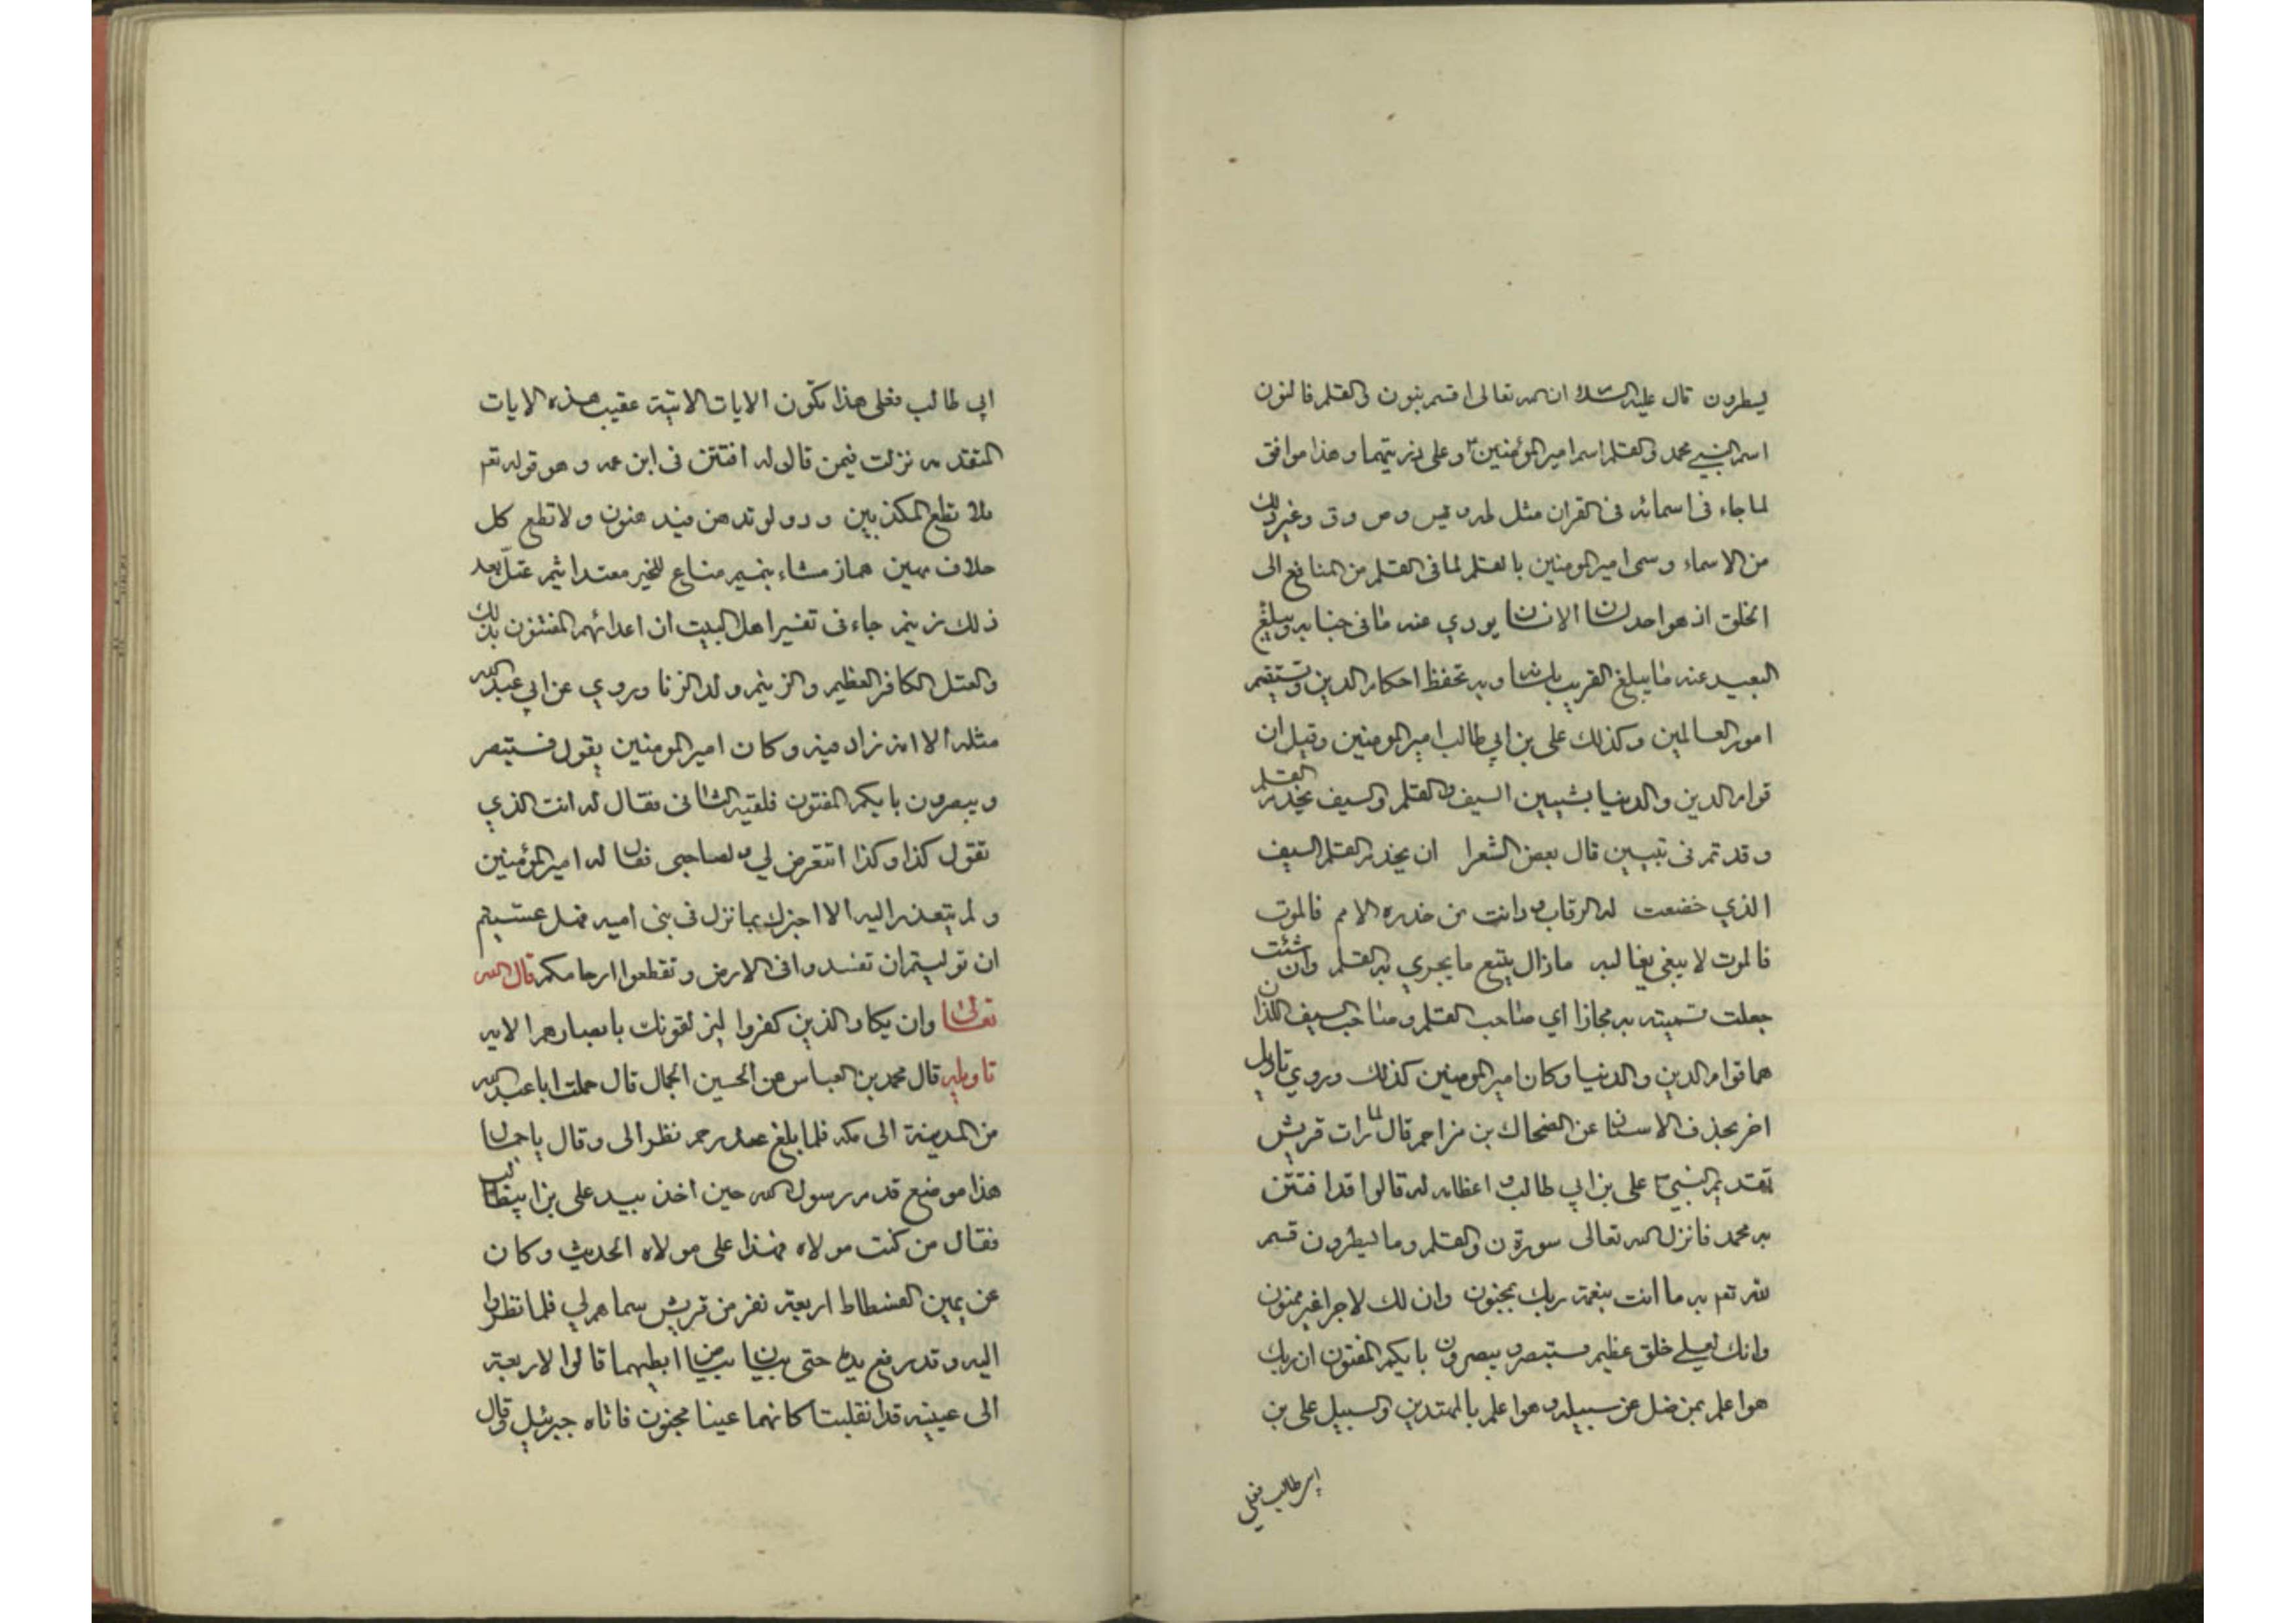 يسطرون قال عليه السلام ان الله تعالى اقسم بنون والقلم فالنون
اسم النبي محمد والقلم اسم امير المؤمنين و على ذريتهما وهذا موافق
لما جاء فى اسمائه فى القران مثل طه و يس و ص و ق وغير ذلك
من الاسماء وسمى امير المومنين بالقلم لما فى القلم من المنافع الى
الخلق اذ هو احد لسانا الانسان يودي عنه ما فى جنابه ويبلغ
البعيد عنه ما يبلغ القريب بلسانه وبه تحفظ احكام الدين وتستقيم
امور العالمين وكذلك على بن ابي طالب امير المومنين وقيل ان
قوام الدين والدنيا بشيين السيف والقلم والسيف يخدم القلم
و قد تم فى تبيين قال بعض الشعرا ان يخدم القلم السيف
الذي خضعت له الرقاب و دانت من خدره الامم فالموت
فالموت لا يبغى يغالبه مازال يتبع ما يجري به القلم وان شئت
جعلت تسميته به مجازا اي صاحب القلم و صاحب السيف اللذان
هما قوام الدين والدنيا وكان امير المومنين كذلك وروي تاويل
اخر بحذف الاسناد عن الضحاك بن مزاحم قال لما رات قريش
تقديم النبي على بن ابي طالب و اعظامه له قالوا قد افتتن
به محمد فانزل الله تعالى سورة ن والقلم وما يسطرون قسم
لله تعم به ما انت بنعمة ربك بمجنون وان لك لاجرا غير ممنون
وانك لعلى خلق عظيم فستبصر و يبصرون بايكم المفتون ان ربك
هو اعلم بمن ضل عن سبيله و هو اعلم بالمهتدين والسبيل على بن
ابي طالب فعلى
ابي طالب فعلى هذا تكون الايات الاتية عقيب هذه الايات
المتقدمه نزلت فيمن قال له افتتن فى ابن عمه و هو قوله تعم
فلا تطع المكذبين ودو لو تدهن فيدهنون ولا تطع كل
حلاف مهين هماز مشاء بنميم مناع للخير معتد اثيم عتلّ بعد
ذلك زنيم جاء فى تفسير اهل البيت ان اعدائهم المفتنون بذلك
والعتل الكافر العظيم والزنيم ولد الزنا وروي عن ابي عبد الله
مثله الا انه زاد فيه وكان امير المومنين يقول فستبصر
و يبصرون بايكم المفتون فلقيه الثانى فقال له انت الذي
تقول كذا وكذا اتتعرض لي و لصاحبى فقال له امير المؤمنين
و لم يتعذر اليه الا اخبرك بما نزل فى بنى اميه فهل عسيتم
ان توليتم ان تفسدوا فى الارض و تقطعوا ارحامكم قال الله
تعالى وان يكاد الذين كفروا ليزلقونك بابصارهم الايه
تاويله قال محمد بن العباس عن الحسين الجمال قال حملت ابا عبد الله
من المدينة الى مكه فلما بلغ غدير خم نظر الى وقال يا جمال
هذا موضع قدم رسول الله حين اخذ بيد على بن ابيطالب
فقال من كنت مولاه فهذا على مولاه الحديث وكان
عن يمين الفسطاط اربعة نفر من قريش سماهم لي فلما نظروا
اليه و قد رفع يده حتى بان بياض ابطيهما قالوا الاربعة
الى عينيه قد انقلبتا كانهما عينا مجنون فاتاه جبرئيل وقال